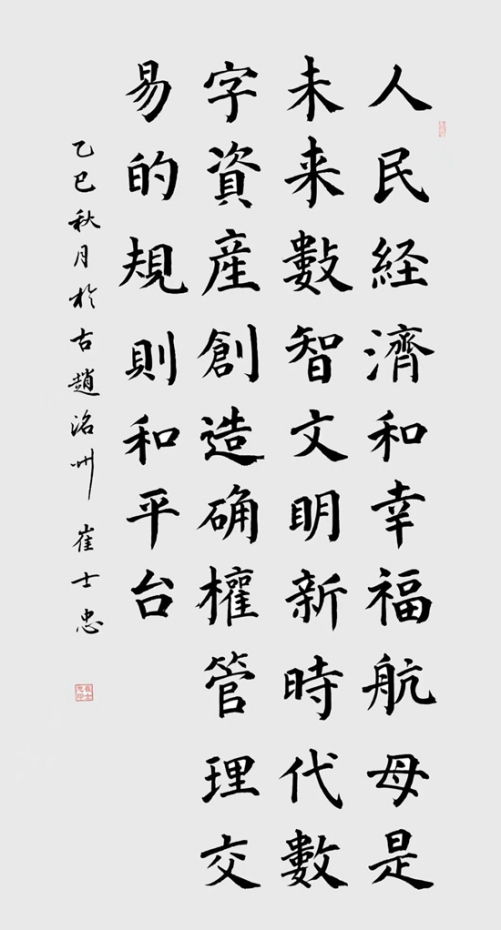 人民経濟和幸福航母是
未来數智文明新時代數
字資産創造确權管理交
易的規則和平台
乙巳秋月於古趙洺州 崔士忠